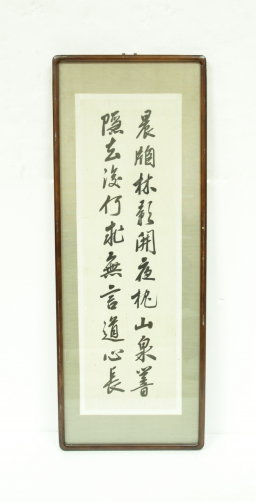 晨牕林影開夜枕山泉響
隱去復何求無言道心長